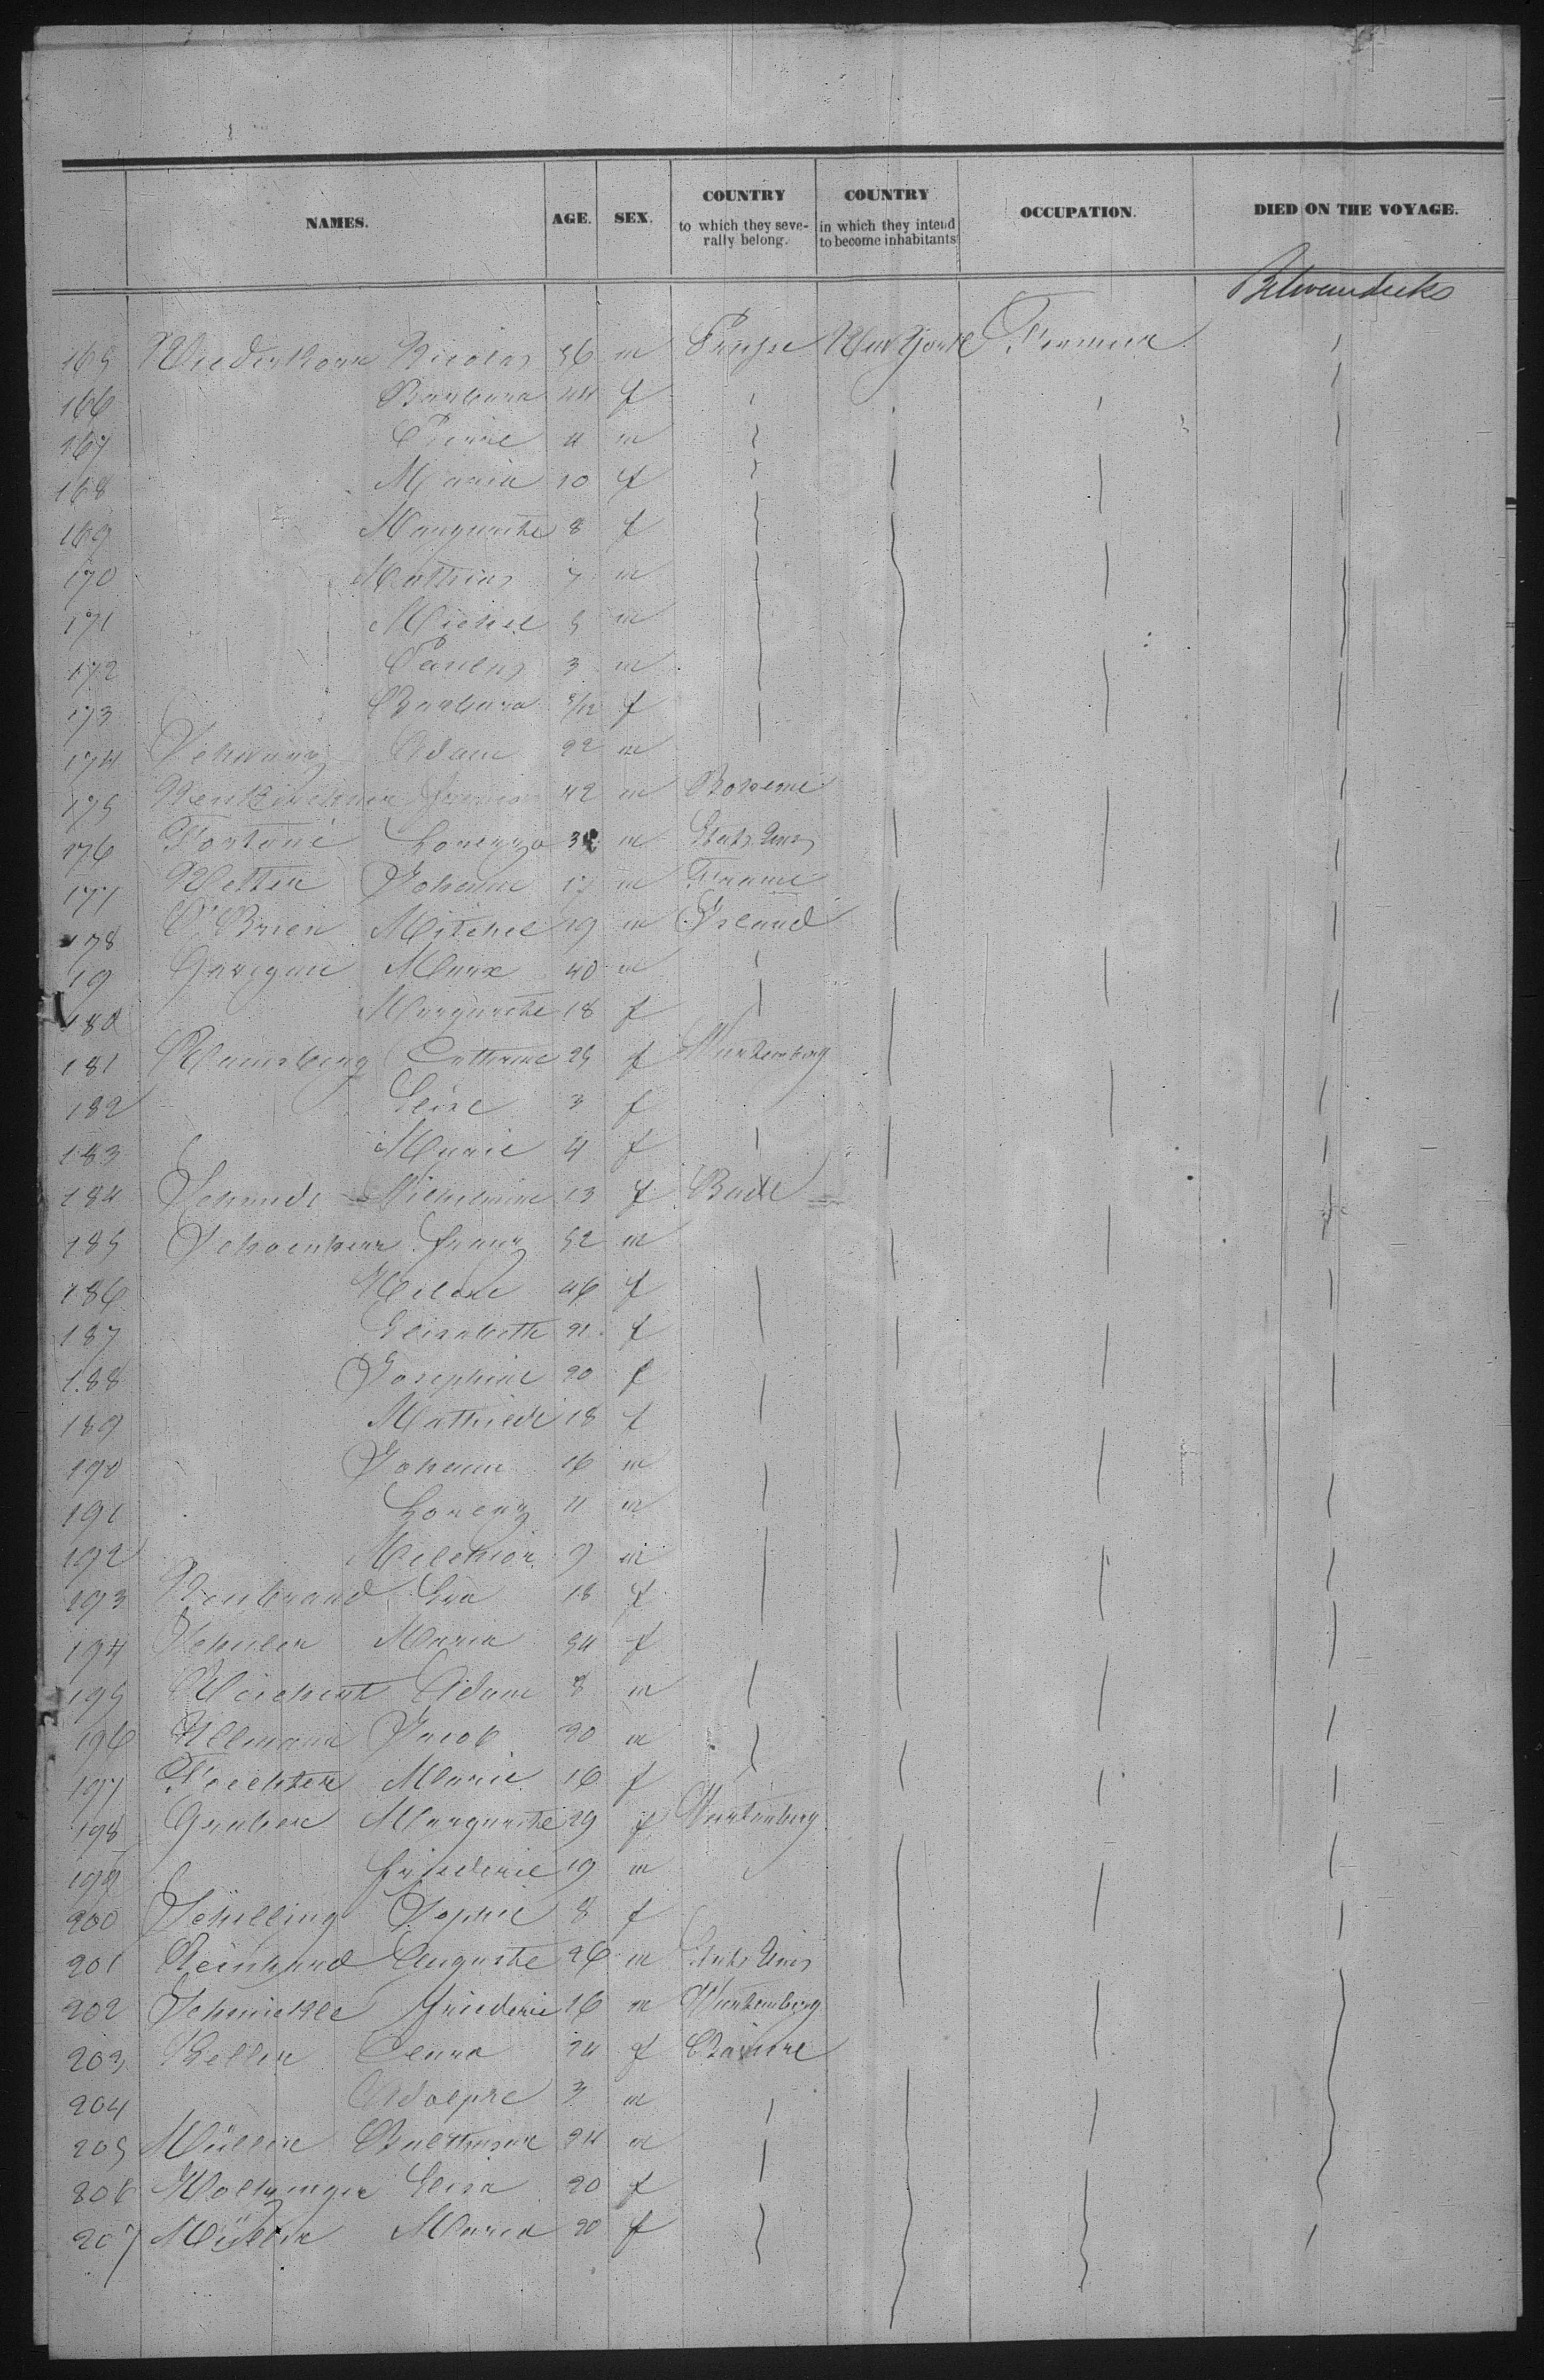 NAMES. AGE. SEX. COUNTRY to which they severally belong. COUNTRY in which they intend to become inhabitants OCCUPATION. DIED ON THE VOYAGE.
165 Niederkorn Nicolas 56 m Prusse New York Fermier
166 Barbara 44 f
167 Pierre 11 m
168 Maria 10 f
169 Marguerithe 8 f
170 Mathias 7 m
171 Michel 5 m
172 Paulus 3 m
173 Barbara /12 f
174 Schwarz Adam 22 m
175 42 m Boheme
176 Fortuné Lorenzo 3 m Etats Unis
177 Vetter Johann 17 m France
178 O'Brien Mitchel 19 m Irland
19 Garigan Marx 40 m
180 Marguerithe 18 f
181 Catherine 25 f Wurtemberg
182 Elise 3 f
183 Marie 4 f
184 Schmidt Wilhelmine 13 f Bade
185 Schoenherr Franz 52 m
186 Helene 46 f
187 Elisabeth 21 f
188 Josephine 20 f
189 Mathilde 18 f
190 Johann 16 m
191 Lorenz 11 m
192 Melchior 9 m
193 Neubrand Eva 18 f
194 Schuler Maria 54 f
195 Weichert Adam 8 m
196 Ullmann Jacob 20 m
197 Foechter Marie 16 f
198 Gruber Marguerithe 29 f Wurtemberg
199 Friederic 19 m
200 Schilling Sophie 8 f
201 Reinhard Auguste 26 m Etats Unis
202 Schmickle Friederic 16 m Wurtemberg
203 Keller Clara 24 f Baviere
204 Adolphe 3 m
205 Müller Balthasar 24 m
206 Holzinger Elisa 20 f
207 Müller Maria 20 f